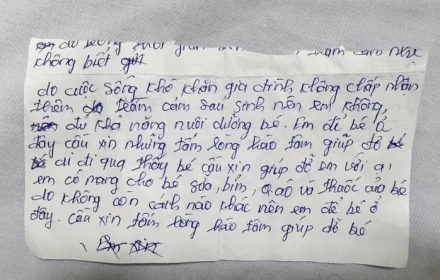 em do
không biết gửi
do cuộc sống khó khăn gia đình không chấp nhận
thêm do trầm cảm sau sinh nên em không
đủ khả năng nuôi dưỡng bé. Em để bé ở
đây cầu xin những tấm lòng hảo tâm giúp đỡ bé
bé ai đi qua thấy bé cầu xin giúp đỡ em với ạ!
em có mang cho bé sữa, bỉm, q.áo và thuốc của bé
do không còn cách nào khác nên em để bé ở
đây. cầu xin tấm lòng hảo tâm giúp đỡ bé